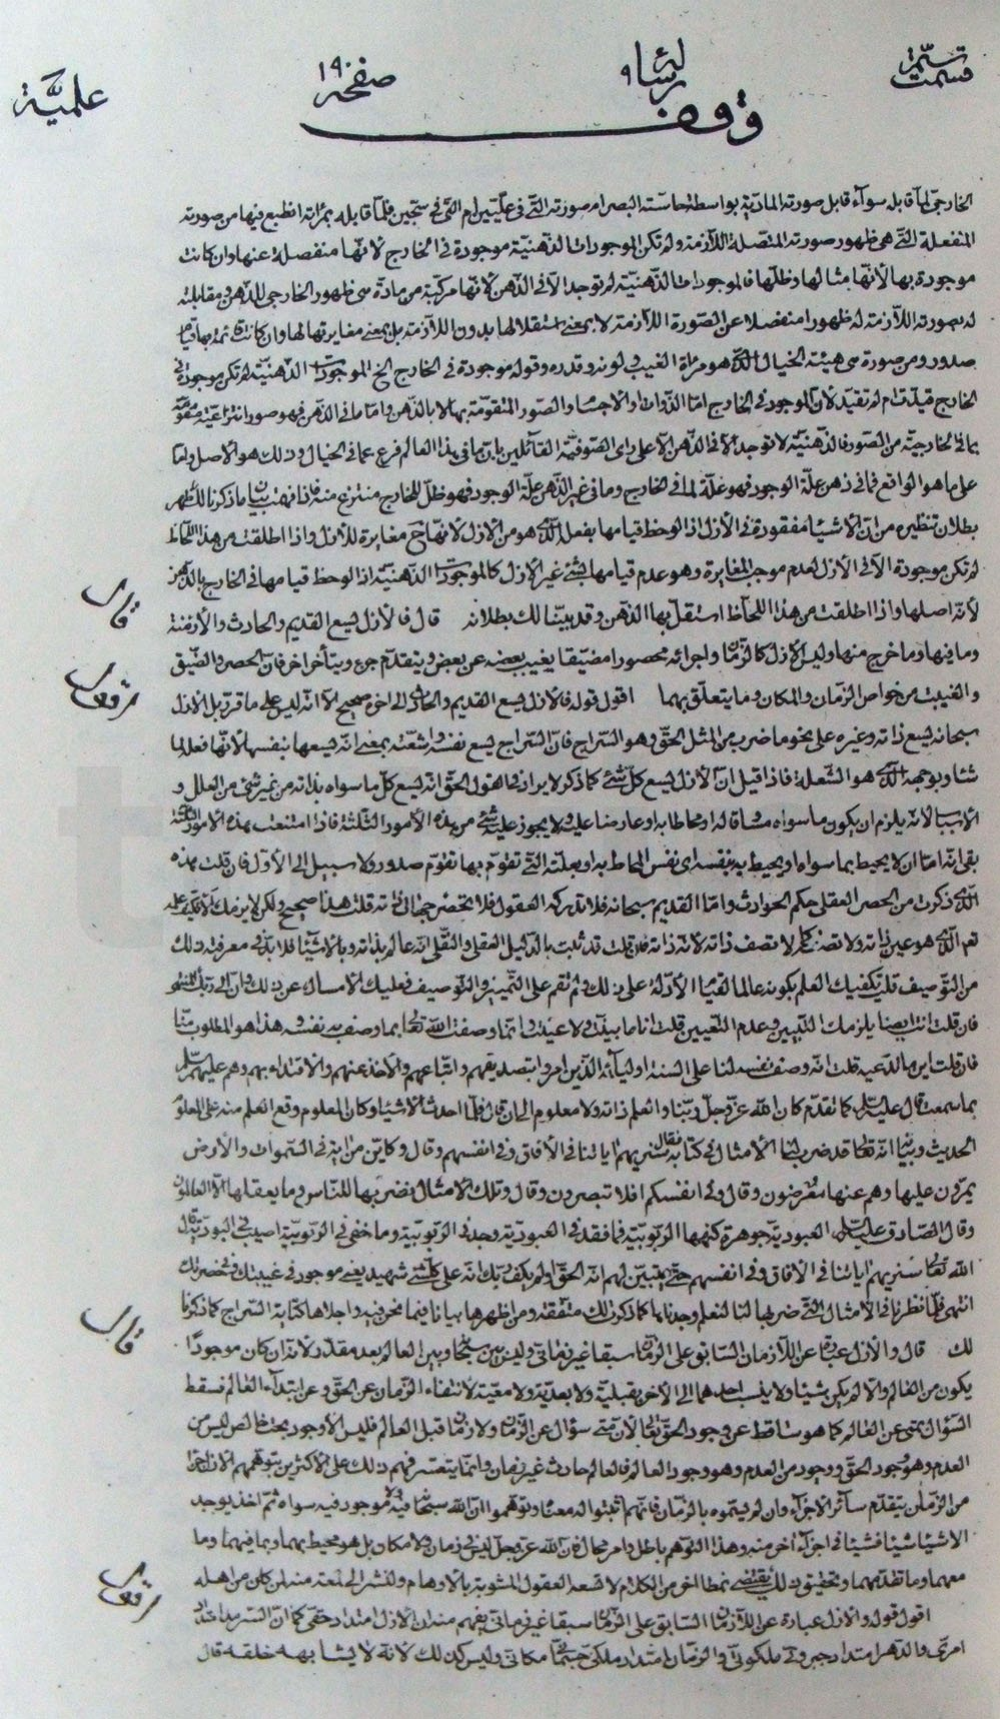 قسمت ستّمة رسالة ٩ صفحة ١٩٠ علميّة
وقف
الخارجيّ لما قابله سوآء قابل صورته الماديّة بواسطة حاسّة البصر ام صورته التّي في علّيّين ام التّي في سجّين فلمّا قابله بمرآته انطبع فيها من صورته
المنفعلة التّي هي ظهور صورته المتّصلة اللّازمة ولم تكن الموجودات الذّهنيّة موجودة في الخارج لانّها منفصلة عنها وان كانت
موجودة بها لأنّها مثالها وظلّها فالموجودات الذّهنيّة لم توجد الّا في الذّهن لانّها مركّبة من مادّة هي ظهور الخارجي للذّهن في مقابلته
له بصورته اللّازمة له ظهورا منفصلا عن الصّورة اللّازمة لا بمعنى استقلالها بدون اللّازمة بل بمعنى مغايرتها لها وان كانت قائمة بها قيام
صدور ومن صورة هي هيئة الخيال الّذي هو مرآة الغيب لونه وقدره وقوله موجودة في الخارج الخ الموجودات الذّهنيّة لم تكن موجودة في
الخارج قيّدت ام لم تقيّد لأن الموجود في الخارج امّا الذّوات او الاجسام والصّور المتقوّمة بها لا بالذّهن وامّا ما في الذّهن فهو صور انتزاعيّة متقوّمة
بما في الخارجيّة من الصّور فالذّهنيّة لا توجد الّا في الذّهن الّا على رأى الصّوفيّة القآئلين بان ما في هذا العالم فرع عمّا في الخيال وذلك هو الأصل وامّا
على ما هو الواقع فما في ذهن علّة الوجود فهو علّة لما في الخارج وما في غير الذّهن علّة الوجود فهو ظلّ للخارج منتزع منه فاذا فهمت بيان ما ذكرنا لك ظهر
بطلان تنظيره من ان الأشيآء مفقودة في الأزل اذا لوحظ قيامها بفعل الّذي هو من الازل لانّها ح مغايرة للأزل واذا اطلقت من هذا اللّحاظ
لم تكن موجودة الّا في الأزل لعدم موجب المغايرة وهو عدم قيامها بشئ غير الازل كالموجودات الذّهنيّة اذا لوحظ قيامها في الخارج بالذّهن
لأنّه اصلها واذا اطلقت من هذا اللحاظ استقلّ بها الذّهن وقد بيّنّا لك بطلانه قال فالأزل يسع القديم والحادث والأزمنة
وما فيها وما خرج منها وليس الازل كالزّمان واجزائه محصورا مضيّقا يغيب بعضه عن بعض ويتقدّم جزء ويتأخر آخر فان الحصر والضّيق
والغيبة من خواص الزّمان والمكان وما يتعلّق بهما اقول قوله فالأزل يسع القديم والحادث الى اخره صحيح الّا انّه ليس على ما قرّر بل الازل
سبحانه يسع ذاته وغيره على نحو ما ضرب من المثل الحقّ وهو السّراج فانّ السّراج يسع نفسه واشعّته بمعنى انّه يسعها بنفسها لأنّها فعل لما
شاء وبوجهه الّذي هو الشّعلة فاذا قيل انّ الأزل يسع كلّ شئ كما ذكر لا يراد في القول الحقّ انّه يسع كلّ ما سواه بذاته من غير شئ من العلل و
الأسباب لأنّه يلزم ان يكون ما سواه مساوقا له او محاطا به او عارضا عليه ولا يجوز عليه شئ من هذه الأمور الثّلثة فاذا امتنعت هذه الأمور الثّلثة
بقى انّه امّا ان لا يحيط بما سواه او يحيط به بنفسه اى نفس المحاط به او بعلّته التّي تقوّم بها تقوّم صدور ولا سبيل الى الأوّل فان قلت هذه
الّذي ذكرت من الحصر العقلى حكم الحوادث وامّا القديم سبحانه فلا تدركه العقول فلا تحصر جهات ذاته قلت هذا صحيح ولكن لا يلزمك
العلم الّذي هو عين ذاته ولا تصفه كما لا تصف ذاته لأنّه ذاته فان قلت قد ثبت بالدّليل العقلى والنّقلى انّه عالم بذاته وبالأشيآء فلا بدّ في معرفة ذلك
من التّوصيف قلت يكفيك العلم بكونه عالما لقيام الأدلّة على ذلك ولم تقم على التّمييز والتّوصيف فعليك الأمساك عن ذلك وان الى ربّك المنتهى
فان قلت انت ايضا يلزمك التّبيين وعدم التّعيين قلت انا ما بيّنت ولا عيّنت وانّما وصفت اللّه تعالى بما وصف به نفسه وهذا هو المطلوب منّا
فان قلت اين ما تدّعيه قلت انّه وصف نفسه لنا على السنة اوليآئه الّذين امروا بتصديقهم واتّباعهم والأخذ عنهم والاقتداء بهم وهم عليهم السّلم
بما سمعت قال عليه السّلم كما تقدّم كان اللّه عزّ وجلّ ربّنا والعلم ذاته ولا معلوم الى ان قال فلمّا احدث الأشيآء وكان المعلوم وقع العلم منه على المعلوم
الحديث وبيّنا انّه تعالى قد ضرب لنا الأمثال في كتابه فقال سنريهم آياتنا في الآفاق وفي انفسهم وقال وكايّن من آية في السّموات والأرض
يمرّون عليها وهم عنها معرضون وقال وفى انفسكم افلا تبصرون وقال وتلك الأمثال نضربها للنّاس وما يعقلها الّا العالمون
وقال الصّادق عليه السّلم العبوديّة جوهرة كنهها الرّبوبيّة فما فقد في العبوديّة وجد في الرّبوبيّة وما خفى في الرّبوبيّة اصيب في العبوديّة قال
اللّه تعالى سنريهم آياتنا في الآفاق وفي انفسهم حتّى يتبيّن لهم انّه الحقّ او لم يكف بربّك انّه على كلّ شئ شهيد يعنى موجود في غيبتك وفي حضرتك
انتهى فلمّا نظرنا في الأمثال التّي ضربها لنا لنعلم وجدناها كما ذكرنا لك متّفقة ومن اظهرها بيانا فيما نحن فيه واجلاها كتابة السّراج كما ذكرنا
لك قال والأزل عبارة عن اللّازمان السّابق على الزّمان سبقا غير زمانىّ وليس بين اللّه سبحانه وبين العالم بعد مقدّر لأنّه ان كان موجودا
يكون من العالم والّا لم يكن شيئا ولا ينسب احدهما الى الآخر بقبليّة ولا بعديّة ولا معيّة لانتفاء الزّمان عن الحقّ وعن ابتداء العالم فسقط
السّؤال بمتى عن العالم كما هو ساقط عن وجود الحقّ تعالى لأن متى سؤال عن الزّمان ولا زمان قبل العالم فليس الّا وجود بحت خالص ليس من
العدم وهو وجود الحقّ ووجود من العدم وهو وجود العالم فالعالم حادث في غير زمان وانّما يتعسّر فهم ذلك على الأكثرين بتوهّمهم الازل جزءا
من الزّمان يتقدّم سآئر الاجزآء وان لم يسمّوه بالزّمان فانّهم اثبتوا له معناه وتوهّموا انّ اللّه سبحانه فيه ولا موجود فيه سواه ثمّ اخذ يوجد
الاشيآء شيئا فشيئا في اجزآء اخر منه وهذا التّوهّم باطل وامر محال فان اللّه عزّ وجلّ ليس في زمان ولا مكان بل هو محيط بهما وبما فيهما وما
معهما وما تقدّمهما وتحقيق ذلك يقتضى نمطا اخر من الكلام لا تسعه العقول المشوبة بالأوهام ولنشر الى لمعة منه لمن كان من اهله
اقول قوله والازل عبارة عن اللّازمان السّابق على الزّمان سبقا غير زمانىّ يفهم منه ان الأزل امتداد حقّى كما انّ السّرمد امتداد
امرىّ والدّهر امتداد جبروتى ملكوتىّ والزّمان امتداد ملكىّ جسمانى مكانى وليس كذلك لأنّه لا يشابهه خلقه قال
قال
اقول
قال
اقول